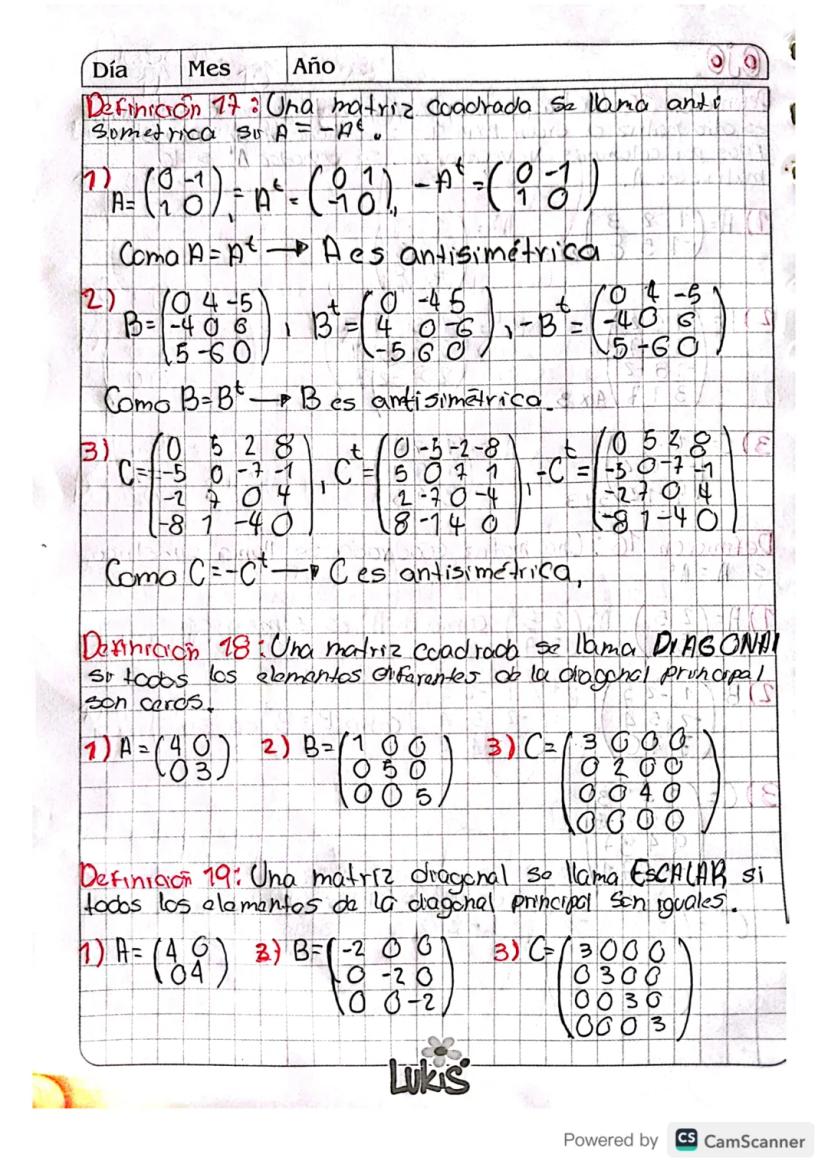 Día Mes Año
Definición 17: Una matriz cuadrada se llama anti
simetrica si A = -Aᵗ.
1) A= (0 -1 / 1 0), = Aᵗ = (0 1 / -1 0), -Aᵗ = (0 -1 / 1 0)
Como A = Aᵗ → A es antisimétrica
2) B= (0 4 -5 / -4 0 6 / 5 -6 0), Bᵗ = (0 -4 5 / 4 0 -6 / -5 6 0), -Bᵗ = (0 4 -5 / -4 0 6 / 5 -6 0)
Como B=Bᵗ → B es antisimétrica.
3) C= (0 5 2 8 / -5 0 -7 -1 / -2 7 0 4 / -8 1 -4 0), Cᵗ = (0 -5 -2 -8 / 5 0 7 1 / 2 -7 0 -4 / 8 -1 4 0), -Cᵗ = (0 5 2 8 / -5 0 -7 -1 / -2 7 0 4 / -8 1 -4 0)
Como C = -Cᵗ → C es antisimétrica,
Definición 18: Una matriz cuadrada se llama DIAGONAL
si todos los elementos diferentes de la diagonal principal
son ceros.
1) A = (4 0 / 0 3) 2) B= (1 0 0 / 0 5 0 / 0 0 5) 3) C= (3 0 0 0 / 0 2 0 0 / 0 0 4 0 / 0 0 0 0)
Definición 19: Una matriz diagonal se llama ESCALAR si
todos los elementos de la diagonal principal son iguales.
1) A= (4 0 / 0 4) 2) B= (-2 0 0 / 0 -2 0 / 0 0 -2) 3) C= (3 0 0 0 / 0 3 0 0 / 0 0 3 0 / 0 0 0 3)
LUKIS
Powered by CS CamScanner